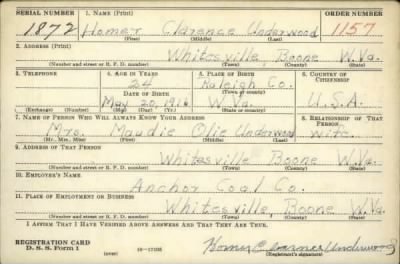 SERIAL NUMBER 1. NAME (Print) ORDER NUMBER
1872 Homer Clarence Underwood 1157
(First) (Middle) (Last)
2. ADDRESS (Print)
Whitesville Boone W.Va.
(Number and street or R. F. D. number) (Town) (County) (State)
3. TELEPHONE 4. AGE IN YEARS 5. PLACE OF BIRTH 6. COUNTRY OF CITIZENSHIP
24 Raleigh Co.
DATE OF BIRTH (Town or county)
May 20, 1916 W.Va. U.S.A.
(Exchange) (Number) (Mo.) (Day) (Yr.) (State or country)
7. NAME OF PERSON WHO WILL ALWAYS KNOW YOUR ADDRESS 8. RELATIONSHIP OF THAT PERSON
Mrs. Maudie Olie Underwood wife.
(Mr., Mrs., Miss) (First) (Middle) (Last)
9. ADDRESS OF THAT PERSON
Whitesville Boone W.Va.
(Number and street or R. F. D. number) (Town) (County) (State)
10. EMPLOYER'S NAME
Anchor Coal Co.
11. PLACE OF EMPLOYMENT OR BUSINESS
Whitesville, Boone W.Va
(Number and street or R. F. D. number) (Town) (County) (State)
I AFFIRM THAT I HAVE VERIFIED ABOVE ANSWERS AND THAT THEY ARE TRUE.
REGISTRATION CARD
D. S. S. Form 1 (over) 16-17105 Homer Clarence Underwood
(Registrant's signature)